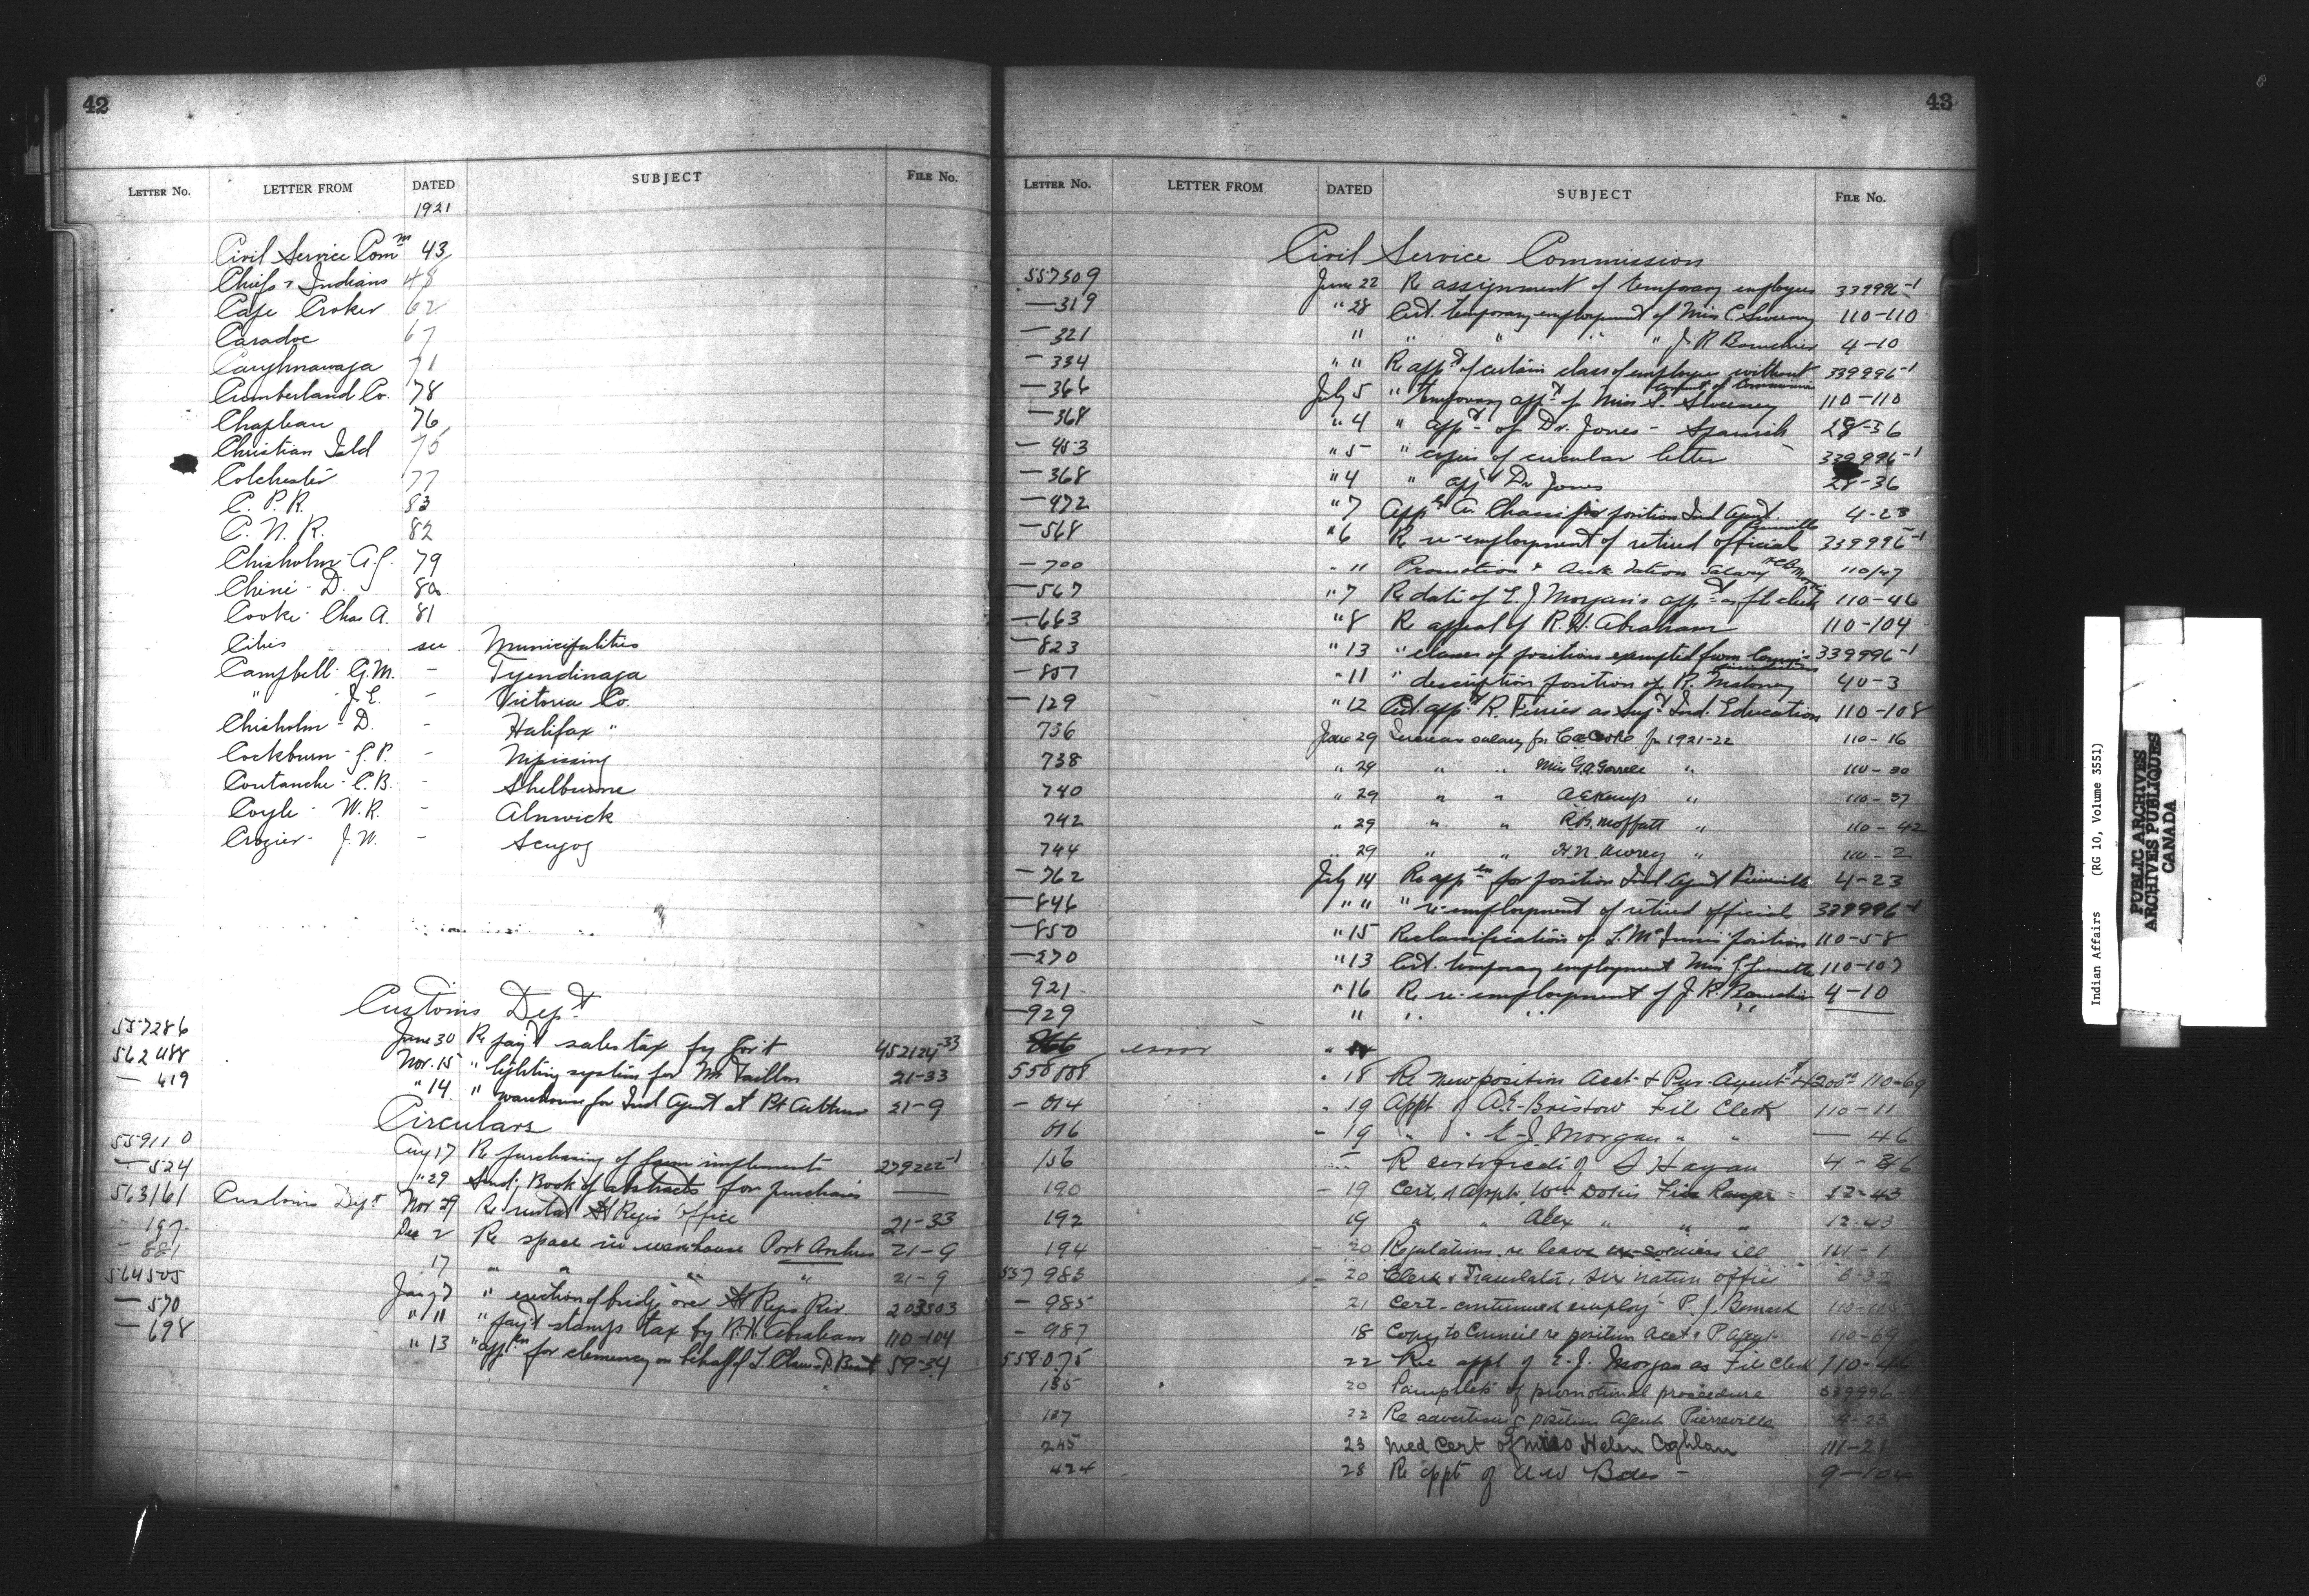 42
LETTER No. LETTER FROM DATED SUBJECT FILE No.
1921
Civil Service Comm 43
Chiefs & Indians 48
Cape Croker 62
Caradoc 67
Caughnawaga 71
Cumberland Co. 78
Chapleau 76
Christian Isld 75
Colchester 77
C. P. R. 83
C. N. R. 82
Chisholm - A.G. 79
Chiné - D. 80
Cooke - Chas A. 81
Cities see Municipalities
Campbell - G.M. - Tyendinaga
" J.E. - Victoria Co.
Chisholm - D. - Halifax "
Cockburn - G.P. - Nipissing
Coutanche - C.B. - Shelburne
Coyle - W.R. - Alnwick
Crozier - J.W. - Scugog
Customs Dept
557286 June 30 Re payt sales tax by Gov't 452124-33
562488 Nov. 15 " lighting system for Mr Taillon 21-33
— 419 " 14 " warehouse for Ind Agent at Pt Arthur 21-9
Circulars
559110 Aug 17 Re purchasing of farm implements 279222-1
— 524 " 29 Send'g Book of abstracts for purchases —
563161 Customs Dept Nov 29 Re rental St Regis Office 21-33
- 197 Dec 2 Re space in warehouse Port Arthur 21-9
- 881 17 " " " " 21-9
564505 Jany 7 " erection of bridge over St Regis Riv. 203503
— 570 " 11 " pay't stamps tax by R.H. Abraham 110-104
— 698 " 13 " appln for clemency on behalf of 59-34
43
LETTER No. LETTER FROM DATED SUBJECT FILE No.
Civil Service Commission
557309 June 22 Re assignment of temporary employees 339996-1
— 319 " 28 Cert. temporary employment of Miss C. Sweeney 110-110
— 321 " " " " " J. R. Bourchier 4-10
— 334 " " Re appt of certain class of employees without consent of Commission 339996-1
— 366 July 5 " temporary appt of Miss S. Sweeney 110-110
— 368 " 4 " appt of Dr. Jones - Spanish 28-36
— 453 " 5 " copies of circular letter 339996-1
— 368 " 4 " appt Dr Jones 28-36
— 472 " 7 Appln A. for position Ind Agent Pierreville 4-23
— 568 " 6 Re re-employment of retired officials 339996-1
— 700 " 11 Promotion & salary 110/47
— 567 " 7 Re date of E. J. Morgan's appt as file clerk 110-46
— 663 " 8 Re appeal of R. H. Abraham 110-104
— 823 " 13 " classes of positions exempted from Comm's jurisdiction 339996-1
— 807 " 11 " description position of R. Maloney 40-3
— 129 " 12 Cert. appt R. Ferrier as Supt Ind. Education 110-108
736 June 29 Increase salary for C A Cooke for 1921-22 110-16
738 " 29 " " Miss G.A. Gorrell " 110-30
740 " 29 " " A E Kemp " 110-37
742 " 29 " " R.B. Moffatt " 110-42
744 " 29 " " H.N. Awrey " 110-2
— 762 July 14 Re appln for position Ind. Agent Pierreville 4-23
— 846 " " " re-employment of retired officials 339996-1
— 850 " 15 Reclassification of L. McInnis' position 110-58
— 270 " 13 Cert. temporary employment Miss 110-107
921 " 16 Re re-employment of J. R. Bourchier 4-10
— 929 " " " "
error
558008 " 18 Re new position Acct & Pur. Agent $4200.00 110-69
— 014 " 19 Appt of A.E. Bristow File Clerk 110-11
016 " 19 " " E. J. Morgan " " — 46
156 Re certificate of S Hayan
190 - 19 Cert. of appt. Wm Dokis Fire Ranger 12-43
192 19 " " Alex " " " 12-43
194 - 20 Regulations re leave ex-soldiers ill 111-1
557983 - 20 Clerk & Translator, Six Nation Office 8-32
— 985 21 Cert. continued employ't P. J. 110-105
— 987 18 Copy to Council re position Acct & P Agent 110-69
558075 22 Re appt of E. J. Morgan as File Clerk 110-46
135 20 Pamphlets of promotional procedure 339996-
137 22 Re advertising position Agent Pierreville 4-23
245 23 Med Cert of Miss Helen Coghlan 111-21
424 28 Re appt of 9-104
Indian Affairs (RG 10, Volume 3551)
PUBLIC ARCHIVES
ARCHIVES PUBLIQUES
CANADA